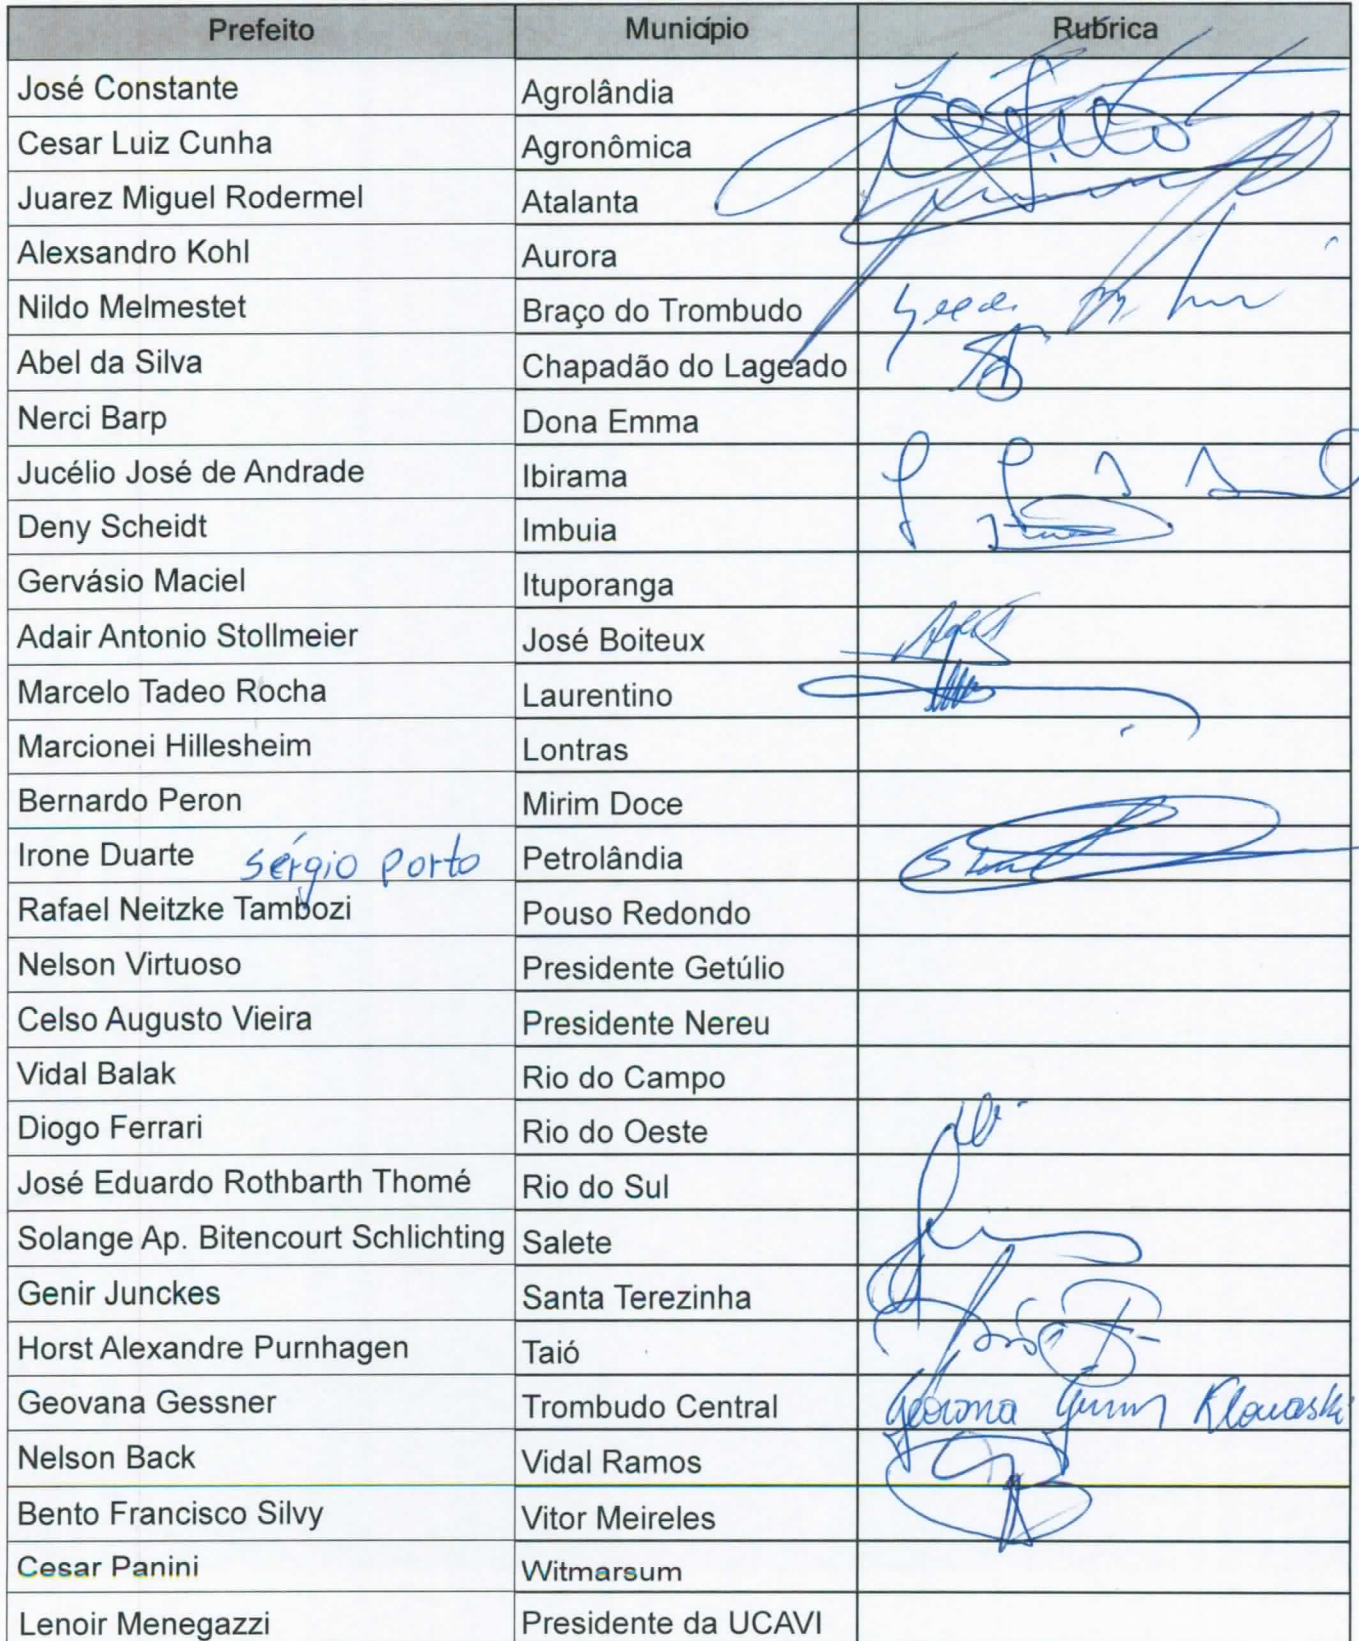 Prefeito Município Rubrica
José Constante Agrolândia
Cesar Luiz Cunha Agronômica
Juarez Miguel Rodermel Atalanta
Alexsandro Kohl Aurora
Nildo Melmestet Braço do Trombudo
Abel da Silva Chapadão do Lageado
Nerci Barp Dona Emma
Jucélio José de Andrade Ibirama
Deny Scheidt Imbuia
Gervásio Maciel Ituporanga
Adair Antonio Stollmeier José Boiteux
Marcelo Tadeo Rocha Laurentino
Marcionei Hillesheim Lontras
Bernardo Peron Mirim Doce
Irone Duarte sérgio porto Petrolândia
Rafael Neitzke Tambozi Pouso Redondo
Nelson Virtuoso Presidente Getúlio
Celso Augusto Vieira Presidente Nereu
Vidal Balak Rio do Campo
Diogo Ferrari Rio do Oeste
José Eduardo Rothbarth Thomé Rio do Sul
Solange Ap. Bitencourt Schlichting Salete
Genir Junckes Santa Terezinha
Horst Alexandre Purnhagen Taió
Geovana Gessner Trombudo Central Geovana
Nelson Back Vidal Ramos
Bento Francisco Silvy Vitor Meireles
Cesar Panini Witmarsum
Lenoir Menegazzi Presidente da UCAVI